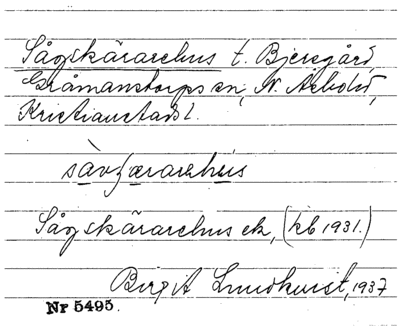 Sågskärarehus t. Bjersgård,
Gråmanstorps sn, N. Åsbohd,
Kristianstads l.
Sågskärarehus ek, (kb 1931.)
Birgit Lundkvist, 1937
Nr 5495.